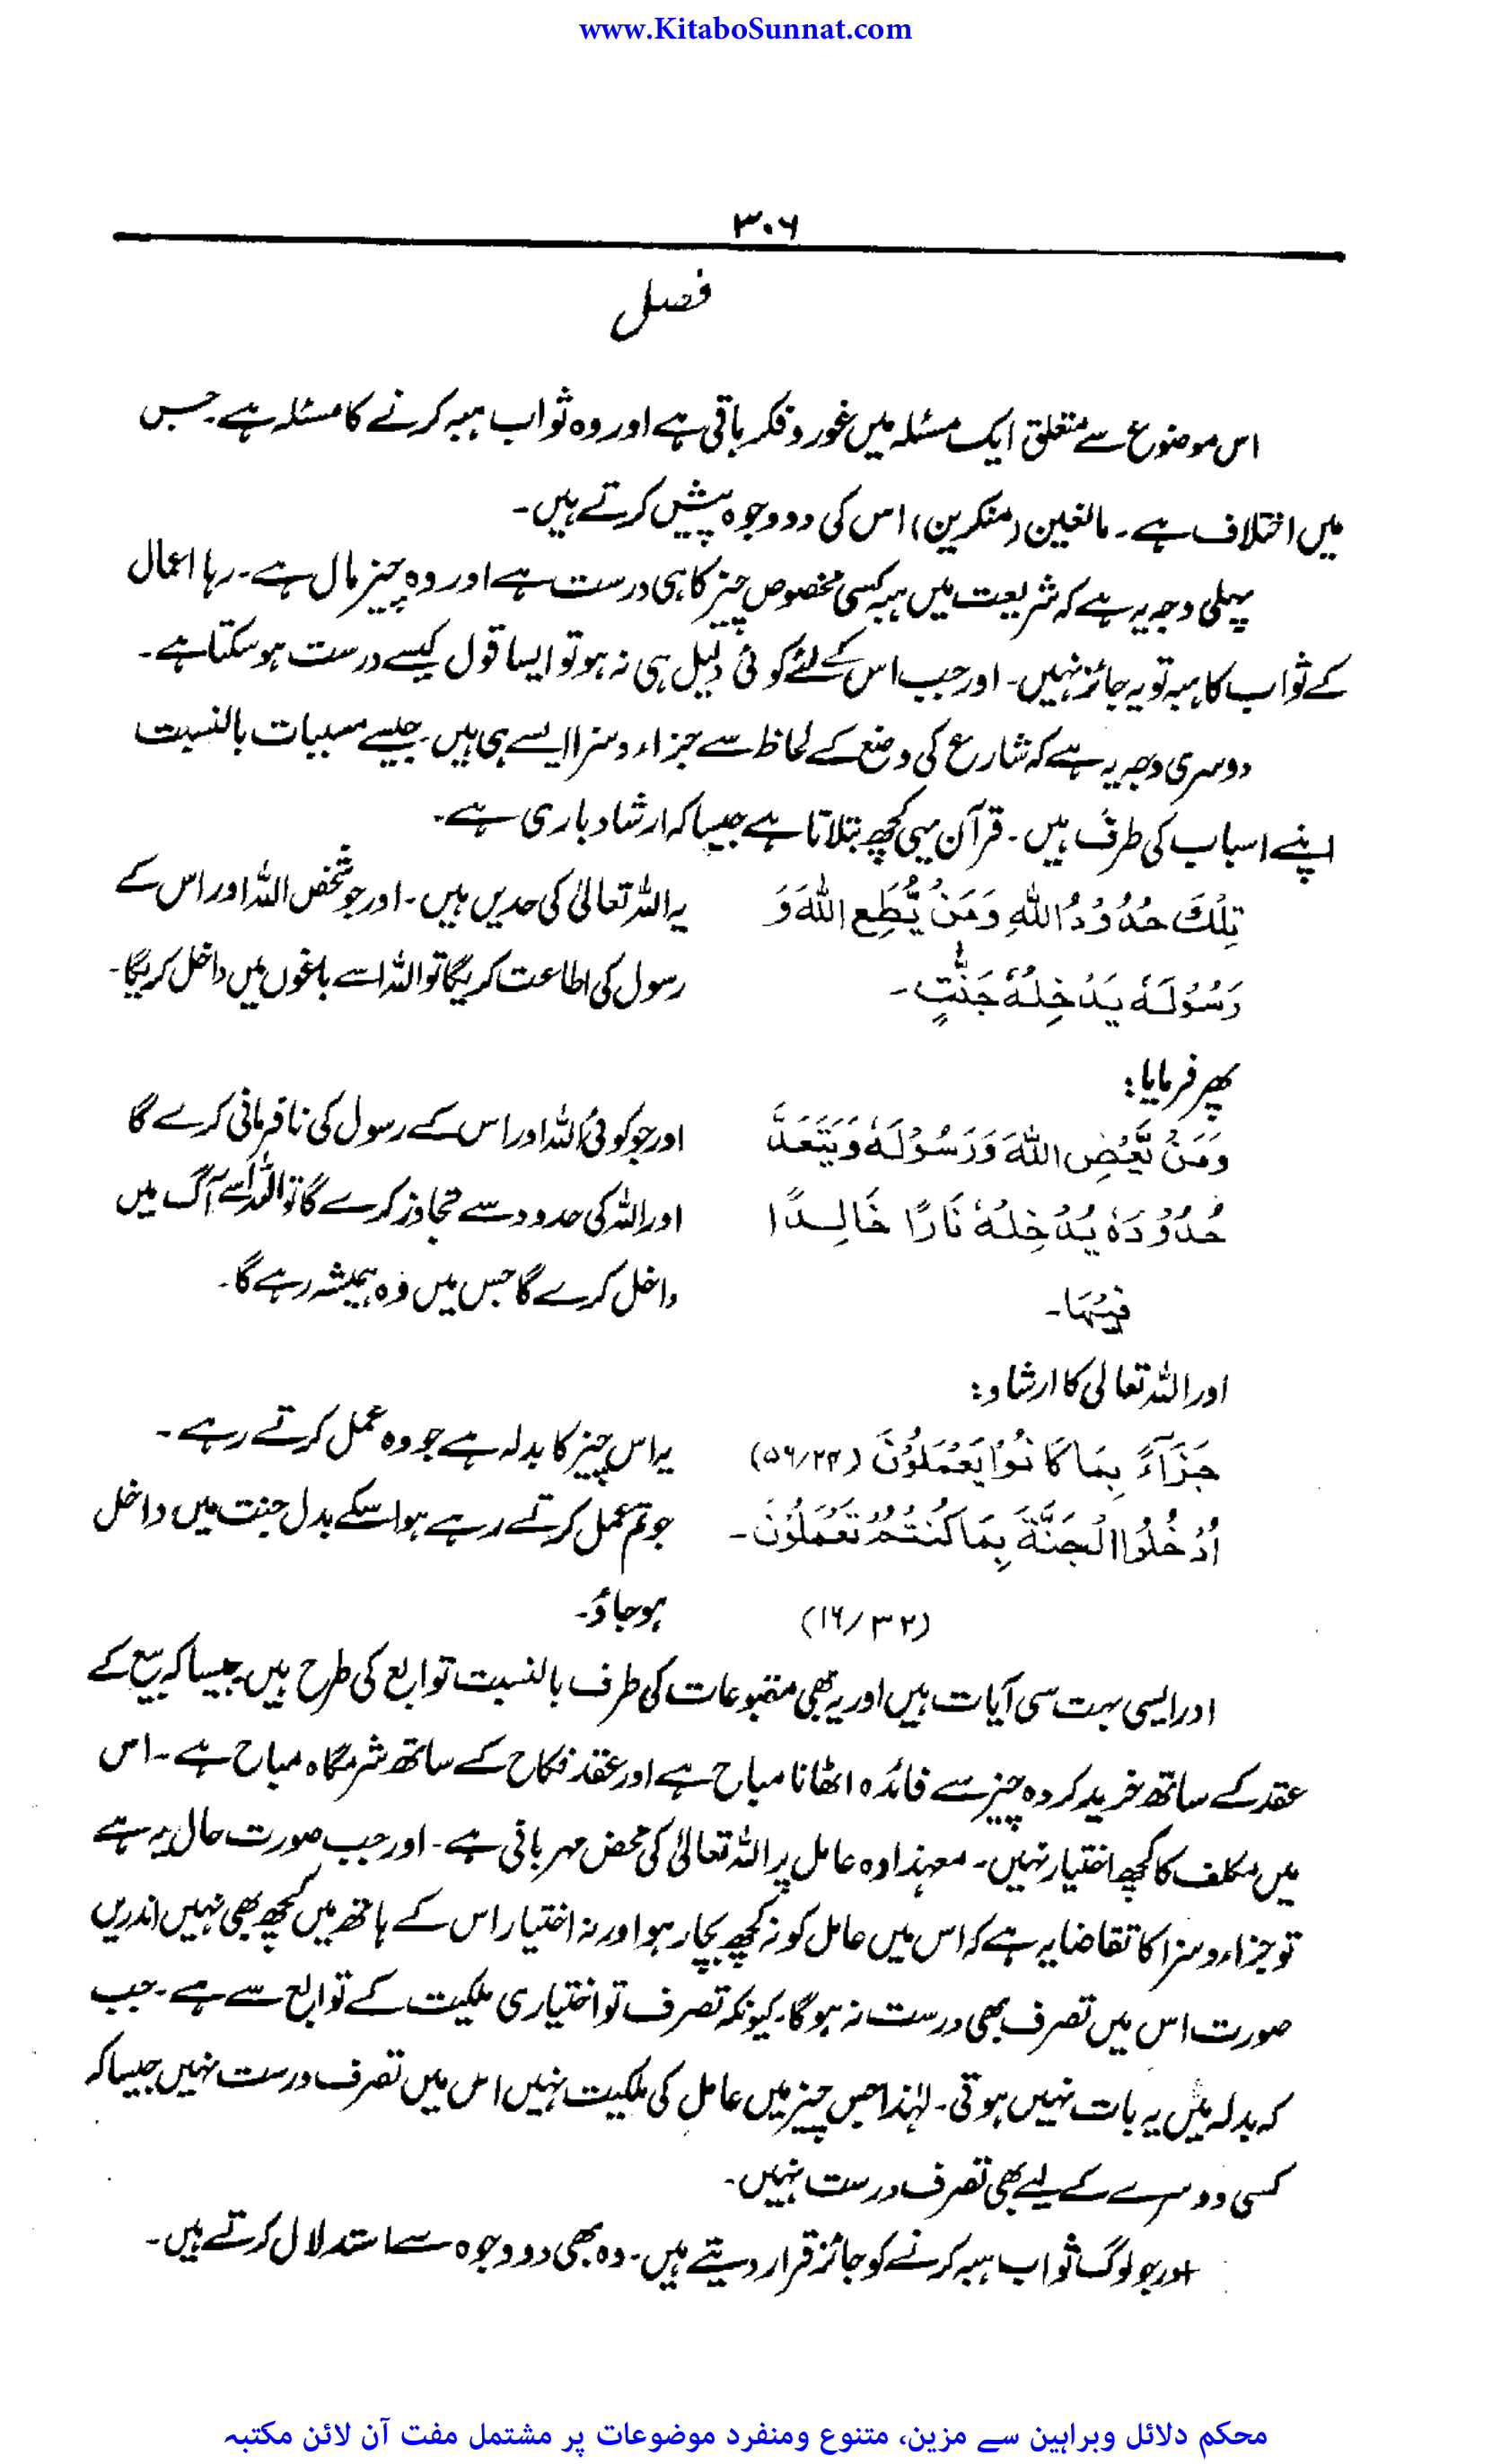 www.KitaboSunnat.com
۳۰۶
فصل
اس موضوع سے متعلق ایک مسئلہ میں غور و فکر باقی ہے اور وہ ثواب ہبہ کرنے کا مسئلہ ہے۔ جس
میں اختلاف ہے۔ مانعین (منکرین) اس کی دو وجوہ پیش کرتے ہیں۔
پہلی وجہ یہ ہے کہ شریعت میں ہبہ کسی مخصوص چیز کا ہی درست ہے اور وہ چیز مال ہے۔ رہا اعمال
کے ثواب کا ہبہ تو یہ جائز نہیں۔ اور جب اس کے لئے کوئی دلیل ہی نہ ہو تو ایسا قول کیسے درست ہو سکتا ہے۔
دوسری وجہ یہ ہے کہ شارع کی وضع کے لحاظ سے جزاء و سزا ایسے ہی ہیں۔ جیسے مسببات بالنسبت
اپنے اسباب کی طرف ہیں۔ قرآن یہی کچھ بتلاتا ہے جیسا کہ ارشاد باری ہے۔
تِلْكَ حُدُوْدُ اللّٰهِ وَمَنْ يُّطِعِ اللّٰهَ وَ یہ اللہ تعالیٰ کی حدیں ہیں۔ اور جو شخص اللہ اور اس کے
رَسُوْلَهٗ يُدْخِلْهُ جَنّٰتٍ۔ رسول کی اطاعت کریگا تو اللہ اسے باغوں میں داخل کریگا۔
پھر فرمایا:
وَمَنْ يَّعْصِ اللّٰهَ وَرَسُوْلَهٗ وَيَتَعَدَّ اور جو کوئی اللہ اور اس کے رسول کی نافرمانی کرے گا
حُدُوْدَهٗ يُدْخِلْهُ نَارًا خَالِدًا اور اللہ کی حدود سے تجاوز کرے گا تو اللہ اسے آگ میں
فِيْهَا۔ داخل کرے گا جس میں وہ ہمیشہ رہے گا۔
اور اللہ تعالی کا ارشاد:
جَزَآءً بِمَا كَانُوْا يَعْمَلُوْنَ (۵۶/۲۴) یہ اس چیز کا بدلہ ہے جو وہ عمل کرتے رہے۔
اُدْخُلُوا الْجَنَّةَ بِمَا كُنْتُمْ تَعْمَلُوْنَ۔ جو تم عمل کرتے رہے ہو اسکے بدل جنت میں داخل
(۱۶/۳۲) ہو جاؤ۔
اور ایسی بہت سی آیات ہیں اور یہ بھی متبوعات کی طرف بالنسبت توابع کی طرح ہیں جیسا کہ بیع کے
عقد کے ساتھ خرید کردہ چیز سے فائدہ اٹھانا مباح ہے اور عقد نکاح کے ساتھ شرمگاہ مباح ہے۔ اس
میں مکلف کا کچھ اختیار نہیں۔ معہذا وہ عامل پر اللہ تعالیٰ کی محض مہربانی ہے۔ اور جب صورت حال یہ ہے
تو جزاء و سزا کا تقاضا یہ ہے کہ اس میں عامل کو نہ کچھ چارہ ہو اور نہ اختیار اس کے ہاتھ میں کچھ بھی نہیں اندریں
صورت اس میں تصرف بھی درست نہ ہوگا۔ کیونکہ تصرف تو اختیاری ملکیت کے توابع سے ہے۔ جب
کہ بدلہ میں یہ بات نہیں ہوتی۔ لہٰذا جس چیز میں عامل کی ملکیت نہیں اس میں تصرف درست نہیں جیسا کہ
کسی دوسرے کے لیے بھی تصرف درست نہیں۔
اور جو لوگ ثواب ہبہ کرنے کو جائز قرار دیتے ہیں۔ وہ بھی دو وجوہ سے استدلال کرتے ہیں۔
محکم دلائل وبراہین سے مزین، متنوع ومنفرد موضوعات پر مشتمل مفت آن لائن مکتبہ